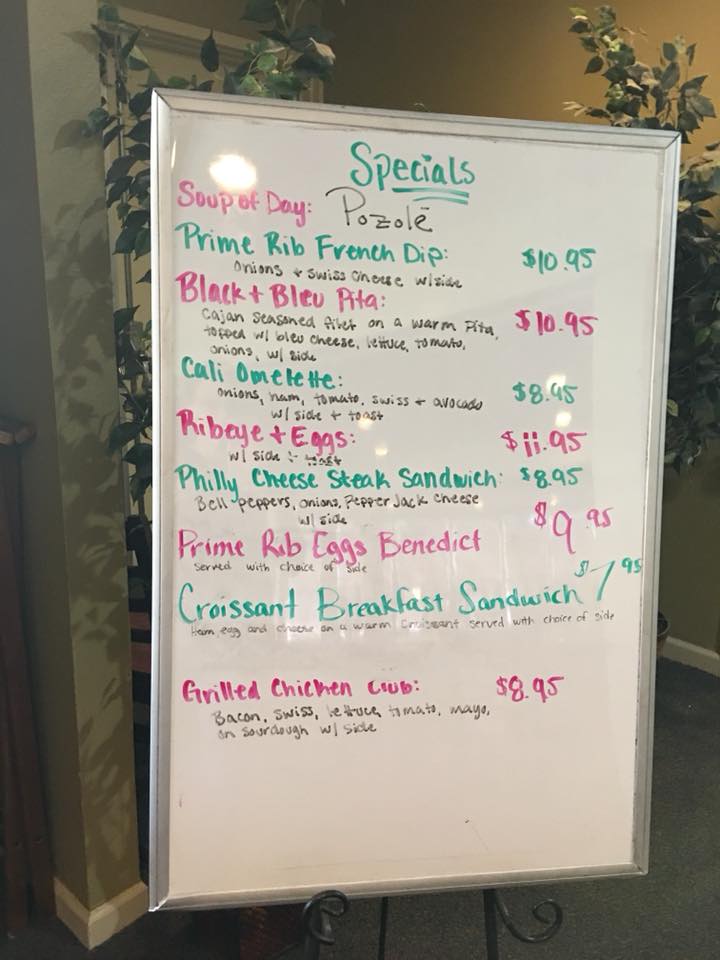 Specials
Soup of Day: Pozolē
Prime Rib French Dip: $10.95
onions + swiss cheese w/side
Black + Bleu Pita:
Cajan seasoned filet on a warm Pita, $10.95
topped w/ bleu cheese, lettuce, tomato,
onions, w/ side
Cali Omelette:
onions, ham, tomato, swiss + avocado $8.95
w/ side + toast
Ribeye + Eggs: $11.95
w/ side + toast
Philly Cheese Steak Sandwich: $8.95
Bell peppers, onions, Pepper Jack cheese
w/ side
Prime Rib Eggs Benedict $9.95
served with choice of side
Croissant Breakfast Sandwich $7.95
Ham egg and cheese on a warm Croissant served with choice of side
Grilled Chicken Club: $8.95
Bacon, swiss, lettuce, tomato, mayo,
on sourdough w/ side